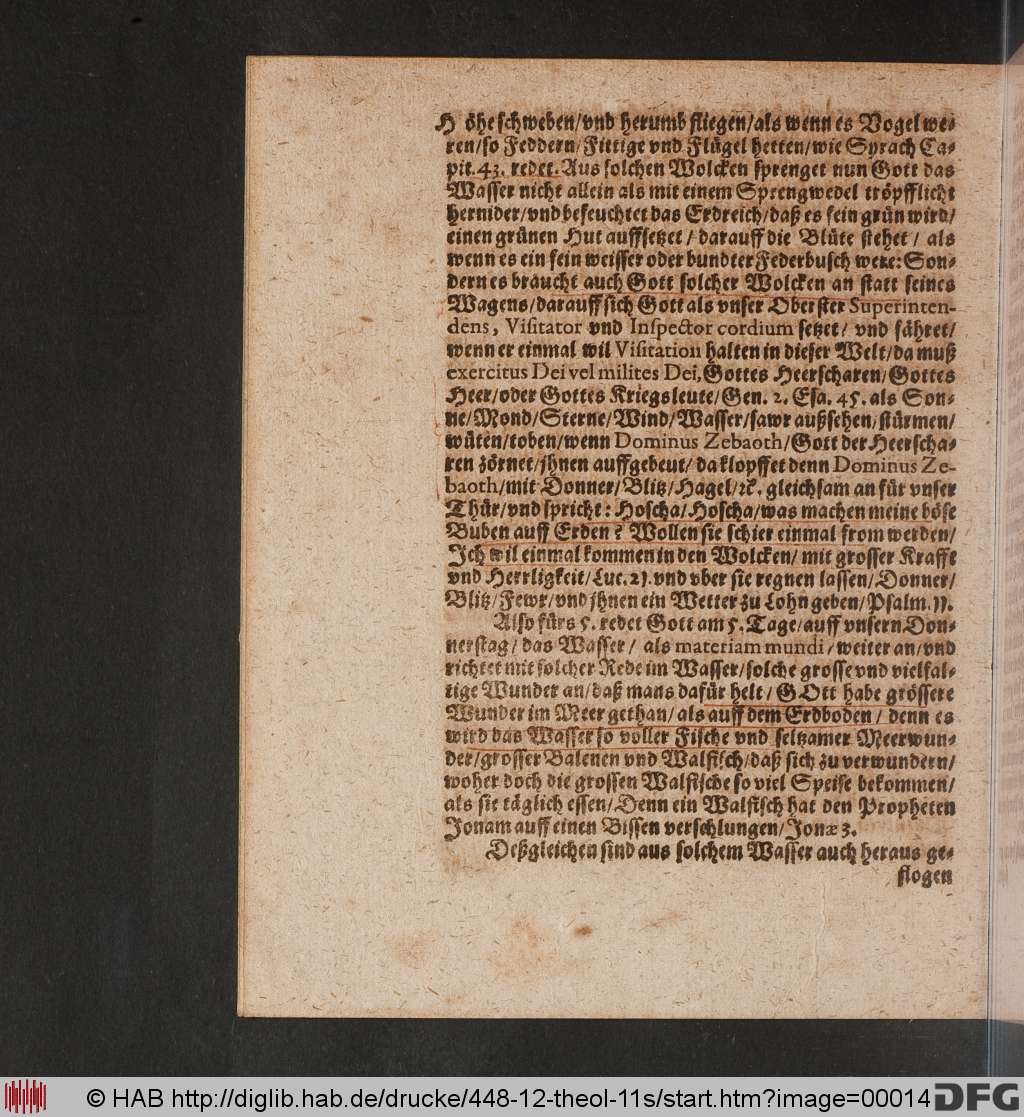 Höhe schweben/vnd herumb fliegen/als wenn es Vogel we-
ren/so Feddern/Fittige vnd Flügel hetten/wie Syrach Ca-
pit. 43. redet. Aus solchen Wolcken sprenget nun Gott das
Wasser nicht allein als mit einem Sprengwedel tröpfflicht
hernider/vnd befeuchtet das Erdreich/daß es fein grün wird/
einen grünen Hut auffsetzet/darauff die Blüte stehet/als
wenn es ein fein weisser oder bundter Federbusch were: Son-
dern es braucht auch Gott solcher Wolcken an statt seines
Wagens/darauff sich Gott als vnser Oberster Superinten-
dens, Visitator vnd Inspector cordium setzet/vnd fähret/
wenn er einmal wil Visitation halten in dieser Welt/da muß
exercitus Dei vel milites Dei, Gottes Heerscharen/Gottes
Heer/oder Gottes Kriegsleute/Gen. 2. Esa. 45. als Son-
ne/Mond/Sterne/Wind/Wasser/sawr außsehen/stürmen/
wüten/toben/wenn Dominus Zebaoth/Gott der Heerscha-
ren zörnet/jhnen auffgebeut/da klopffet denn Dominus Ze-
baoth/mit Donner/Blitz/Hagel/ꝛc. gleichsam an für vnser
Thür/vnd spricht: Hoscha/Hoscha/was machen meine böse
Buben auff Erden? Wollen sie schier einmal from werden/
Ich wil einmal kommen in den Wolcken/mit grosser Krafft
vnd Herrligkeit/Luc. 21. vnd vber sie regnen lassen/Donner/
Blitz/Fewr/vnd jhnen ein Wetter zu Lohn geben/Psalm. 11.
Also fürs 5. redet Gott am 5. Tage/auff vnsern Don-
nerstag/das Wasser/als materiam mundi/weiter an/vnd
richtet mit solcher Rede im Wasser/solche grosse vnd vielfal-
tige Wunder an/daß mans dafür helt/GOtt habe grössere
Wunder im Meer gethan/als auff dem Erdboden/denn es
wird das Wasser so voller Fische vnd seltzamer Meerwun-
der/grosser Balenen vnd Walfisch/daß sich zu verwundern/
woher doch die grossen Walfische so viel Speise bekommen/
als sie täglich essen/Denn ein Walfisch hat den Propheten
Jonam auff einen Bissen verschlungen/Jonæ 3.
Deßgleichen sind aus solchem Wasser auch heraus ge-
flogen
© HAB http://diglib.hab.de/drucke/448-12-theol-11s/start.htm?image=00014
DFG